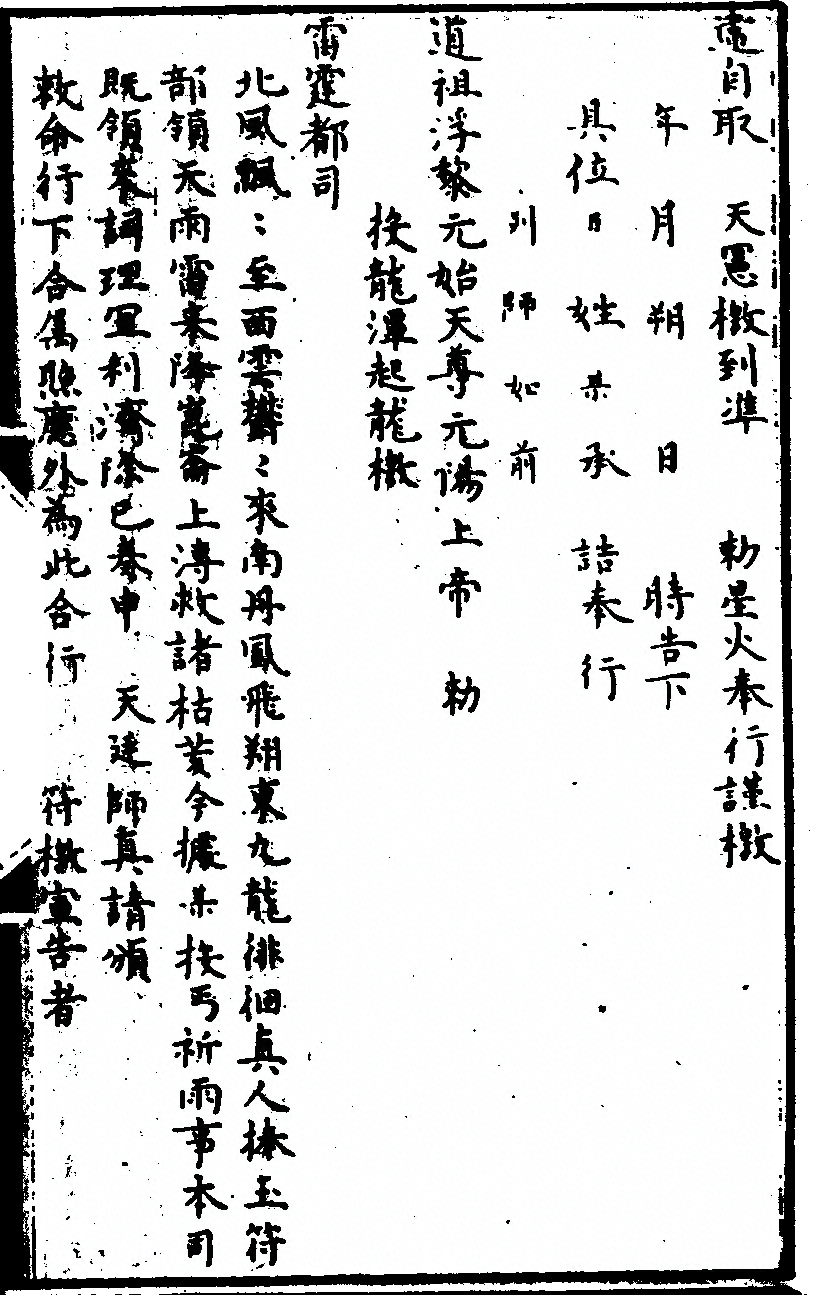 違自取　天憲檄到準　勅星火奉行謹檄
年　月　朔　日　時告下
具位臣姓某承誥奉行
列師如前
道祖浮黎元始天尊元陽上帝　勅
按龍潭起龍檄
雷霆都司
北風飄〻至西雲欝〻來南丹鳳飛翔東九龍徘徊真人捧玉符
部領天雨雷奉降崑崙上溥救諸枯荄今據某按丐祈雨事本司
既領葵詞理宜利濟除已奏申　天廷師真請頒
敕命行下合属照應外為此合行　符檄宣告者